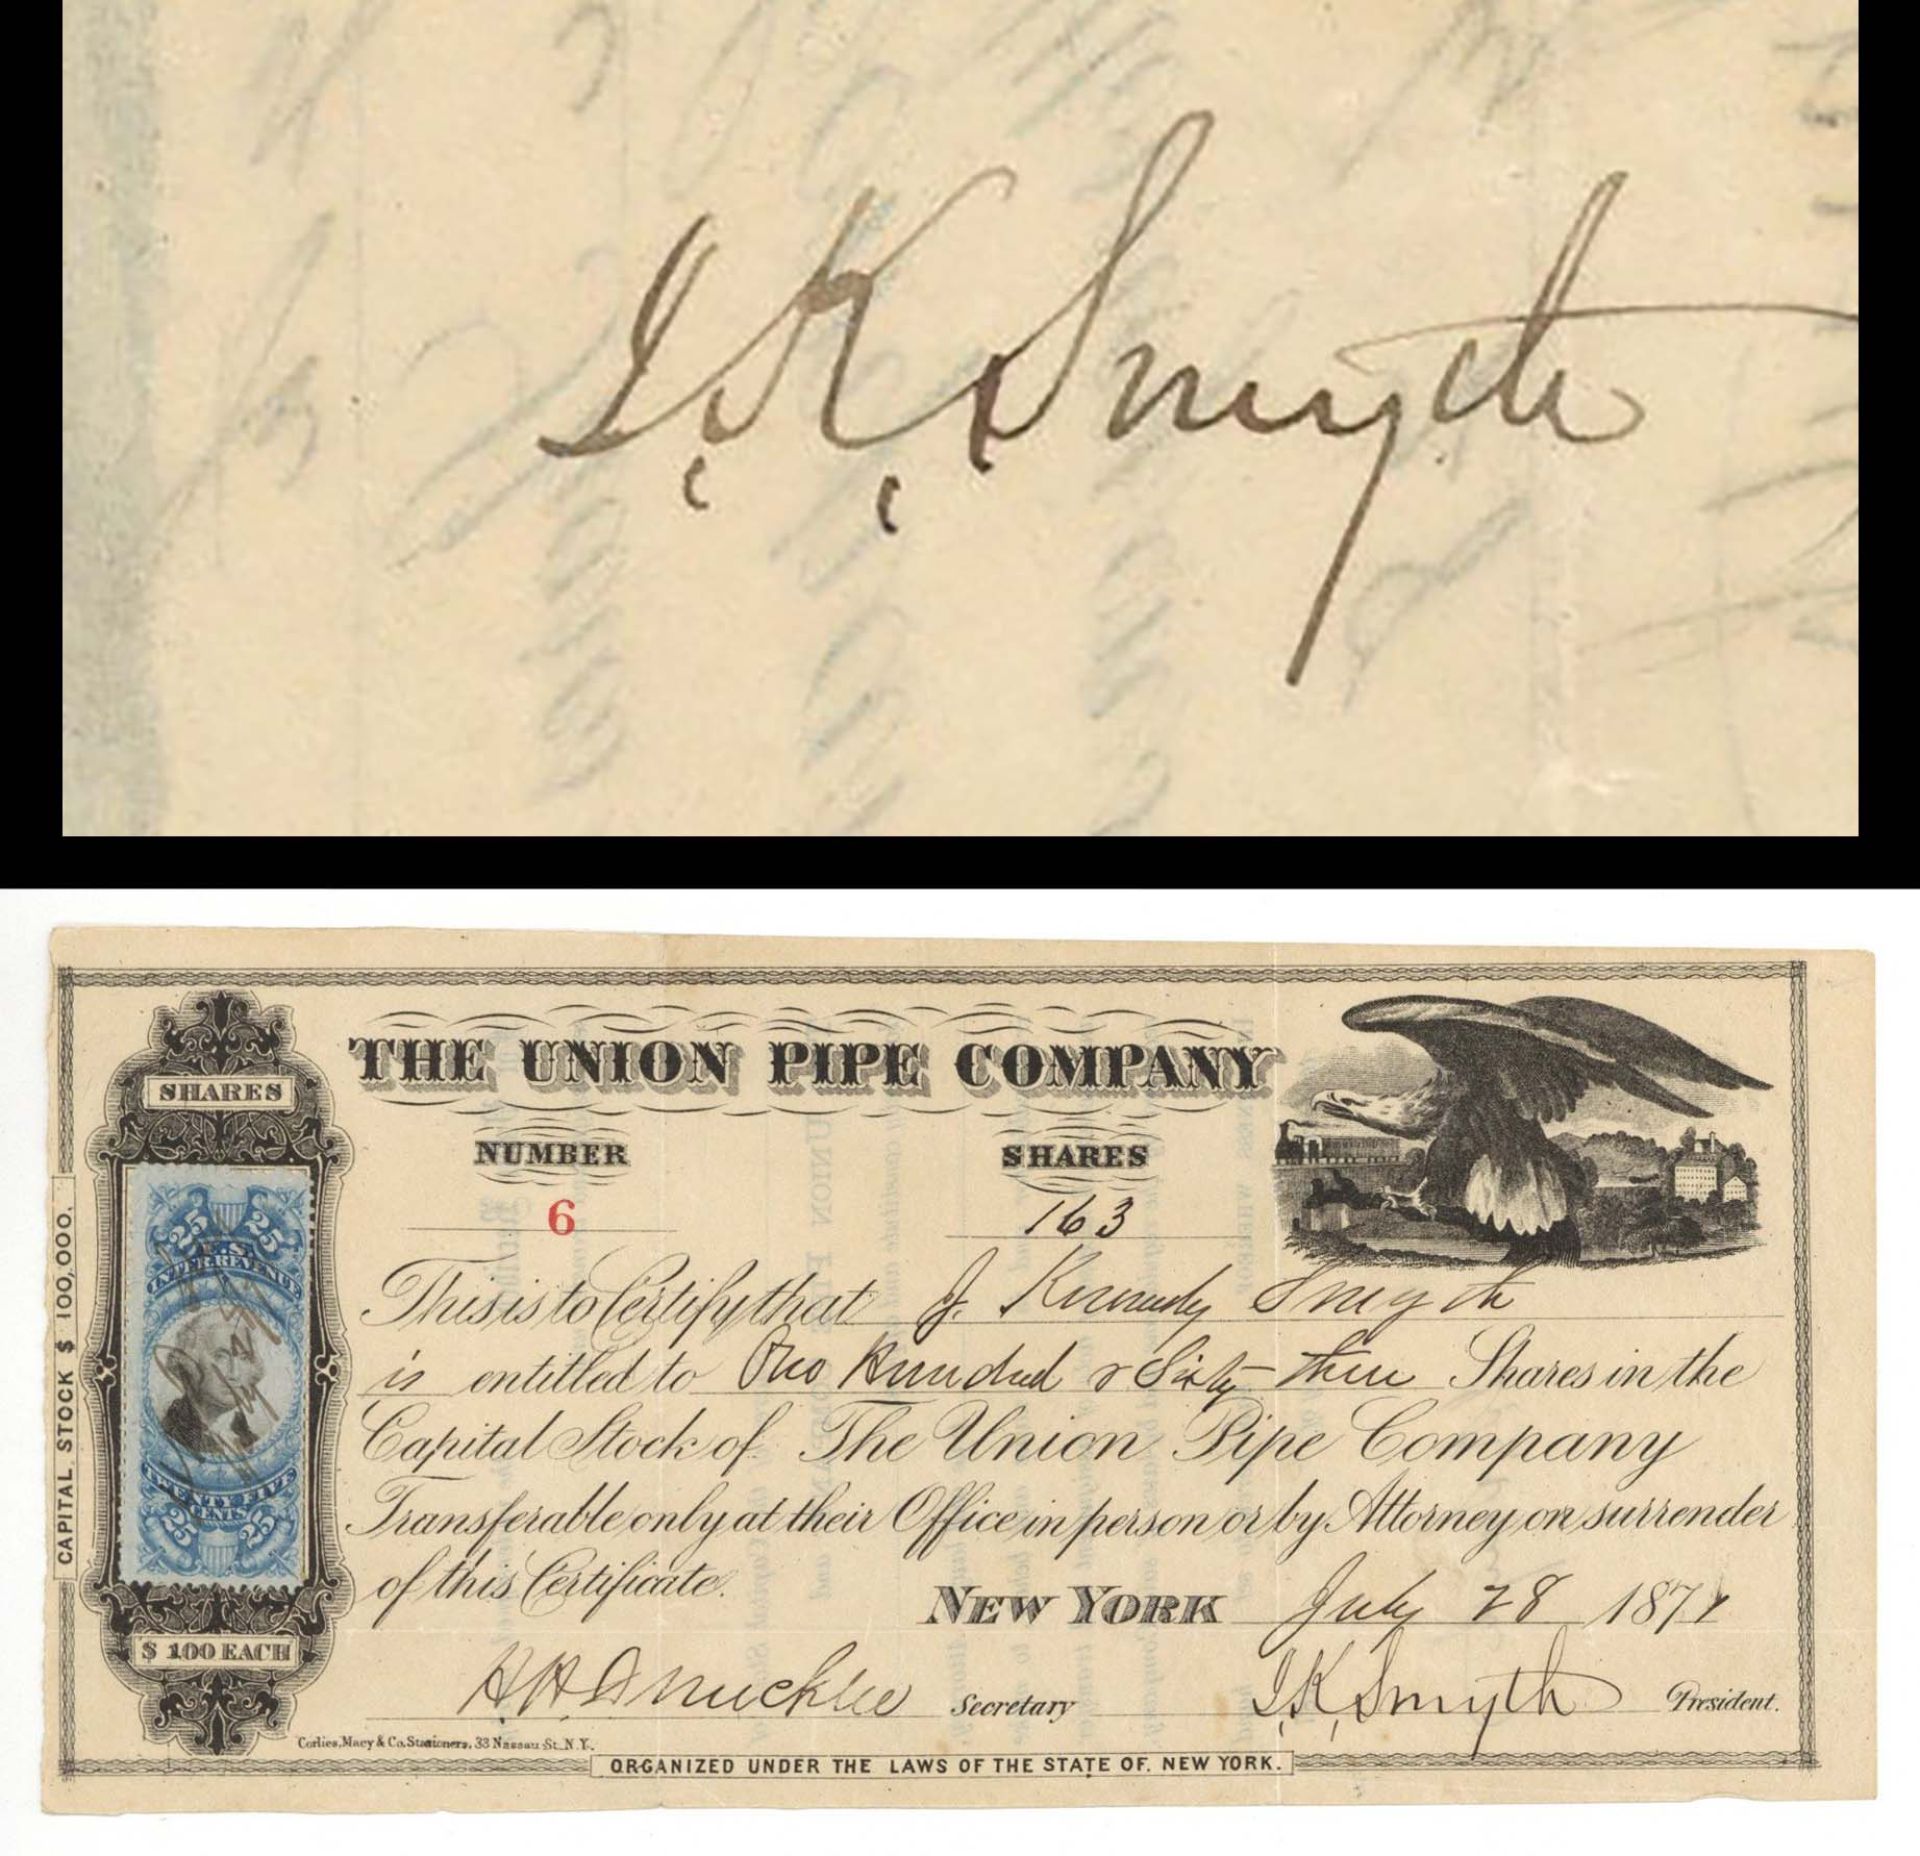 J. K. Smyth
THE UNION PIPE COMPANY
SHARES
NUMBER
SHARES
6
163
25 25
U.S.
INTER. REVENUE
This is to Certify that J. Kennedy Smyth
is entitled to One Hundred & Sixty-three Shares in the
Capital Stock of The Union Pipe Company
Transferable only at their Office in person or by Attorney on surrender
of this Certificate.
TWENTY FIVE
CENTS
25 25
CAPITAL STOCK $ 100,000.
NEW YORK July 28 187
$ 100 EACH
Secretary
J. K. Smyth President.
Corlies, Macy & Co. Stationers, 33 Nassau St. N.Y.
ORGANIZED UNDER THE LAWS OF THE STATE OF NEW YORK.